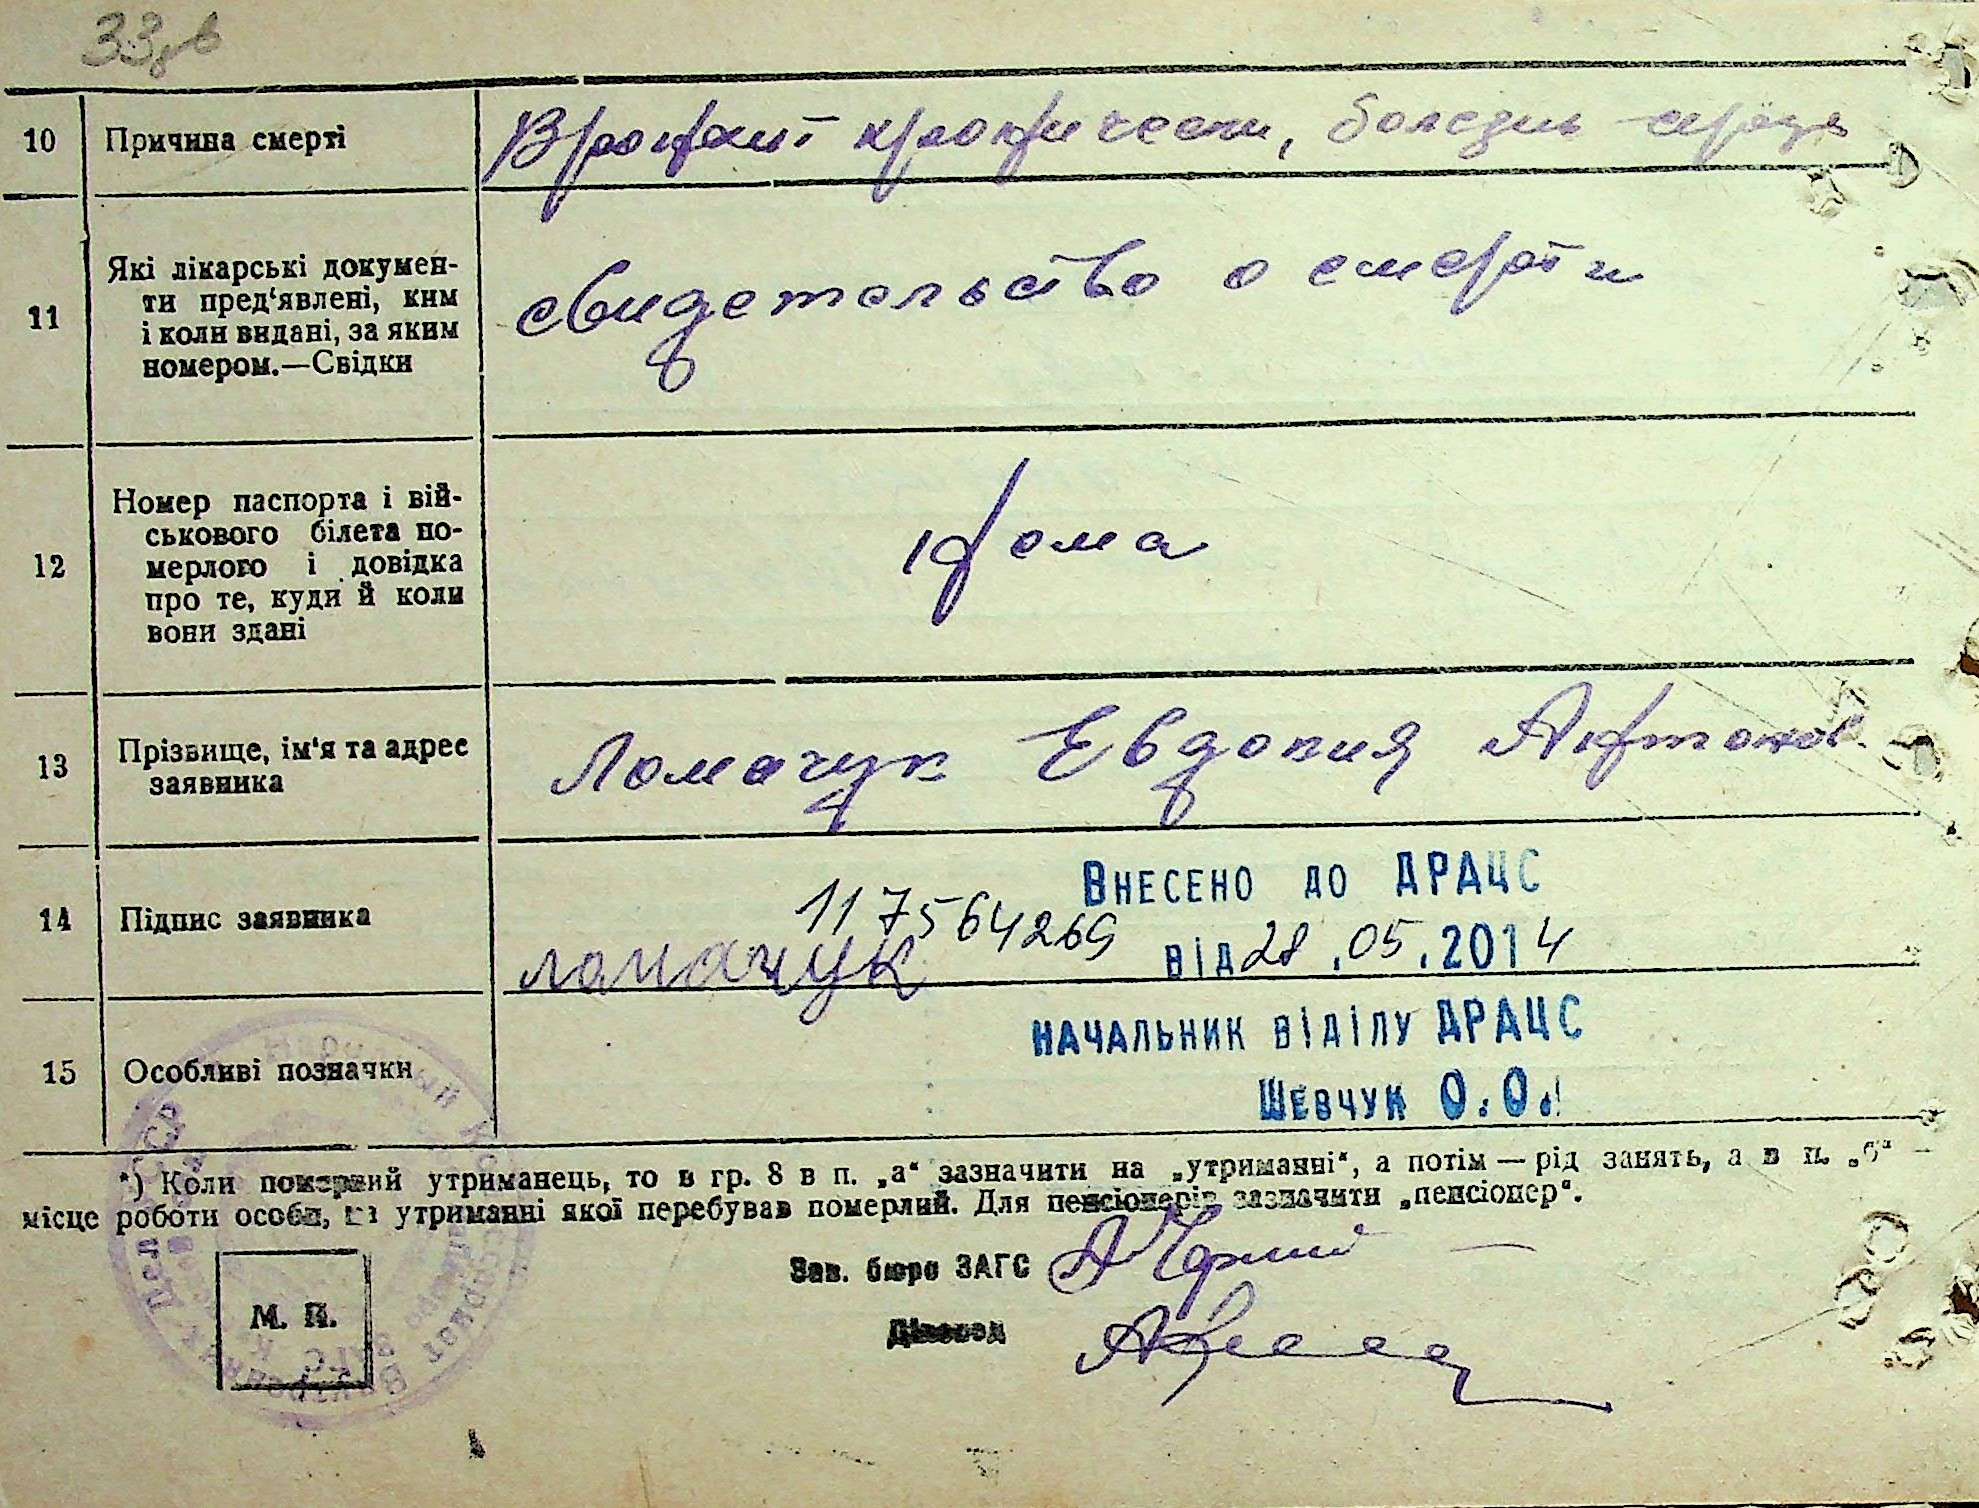 33
10
Причина смерті
хронически, болезнь сердца
11
Які лікарські докумен-
ти пред‘явлені, ким
і коли видані, за яким
номером.—Свідки
свидетельство о смерти
12
Номер паспорта і вій-
ськового білета по-
мерлого і довідка
про те, куди й коли
вони здані
13
Прізвище, ім‘я та адрес
заявника
Ломачук Евдокия
14
Підпис заявника
117564269
ломачук
Внесено до ДРАЦС
від 28.05.2014
15
Особливі позначки
начальник відділу ДРАЦС
Шевчук О.О.
*) Коли померший утриманець, то в гр. 8 в п. „а“ зазначити на „утриманні“, а потім — рід занять, а в п. „б“ —
місце роботи особи, на утриманні якої перебував померлий. Для пенсіонерів зазначити „пенсіонер“.
Зав. бюро ЗАГС
Діловод
М. П.
Народный Комиссариат Внутренних Дел
ЗАГС